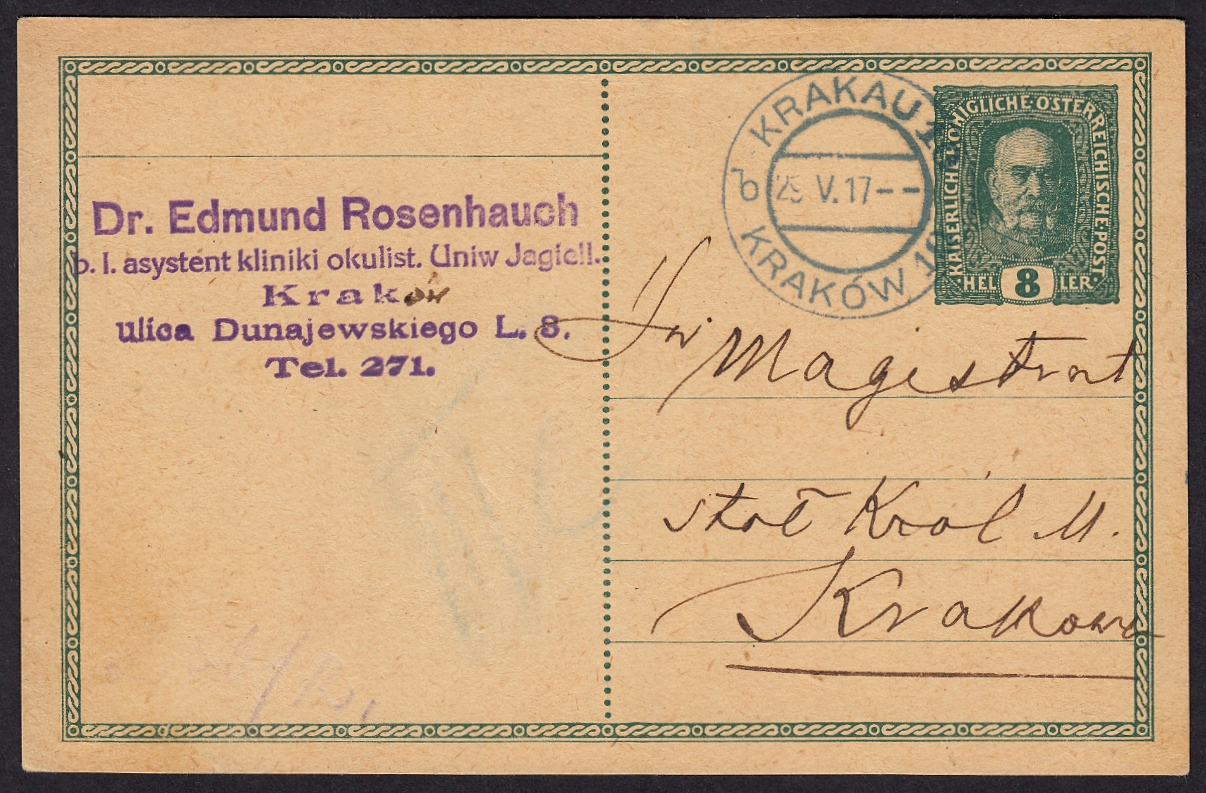 Dr. Edmund Rosenhauch
b. I. asystent kliniki okulist. Uniw Jagiell.
Kraków
ulica Dunajewskiego L. 8.
Tel. 271.
KRAKAU 1
b 25 V. 17--
KRAKÓW 1
KAISERLICHE KÖNIGLICHE ÖSTERREICHISCHE POST
HEL 8 LER
Magistrat
stoł Król M.
Krakowa